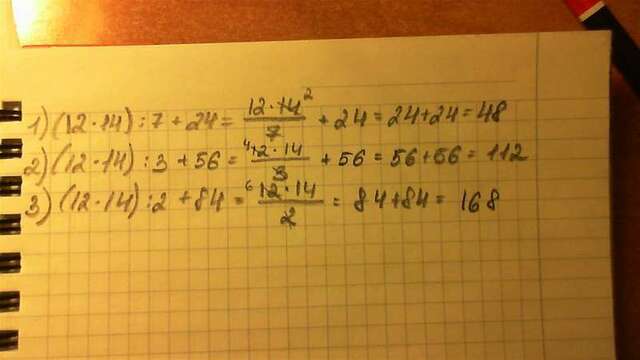 1) (12·14):7+24= 12·14² / 7 + 24 = 24+24 = 48
2) (12·14):3+56= ⁴12·14 / 3 + 56 = 56+56 = 112
3) (12·14):2+84= ⁶12·14 / 2 = 84+84 = 168